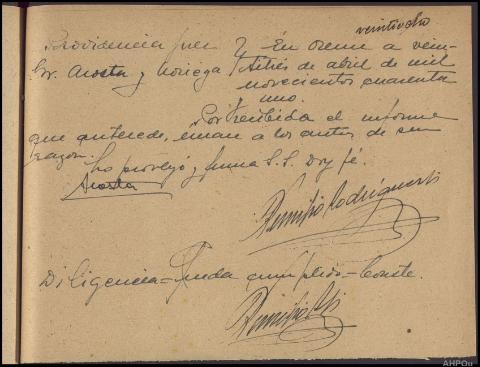 veintiocho
Providencia Juez } En Orense a vein-
Sr. Acosta y Noriega } titrés de abril de mil
novecientos cuarenta
uno.
Por recibida el informe
que antecede, únan a los autos de su
razón.
Lo proveyó y firma S.S. Doy fé.
Acosta
Remigio Rodríguez
Diligencia = Queda cumplido = Conste.
Remigio
AHPOu